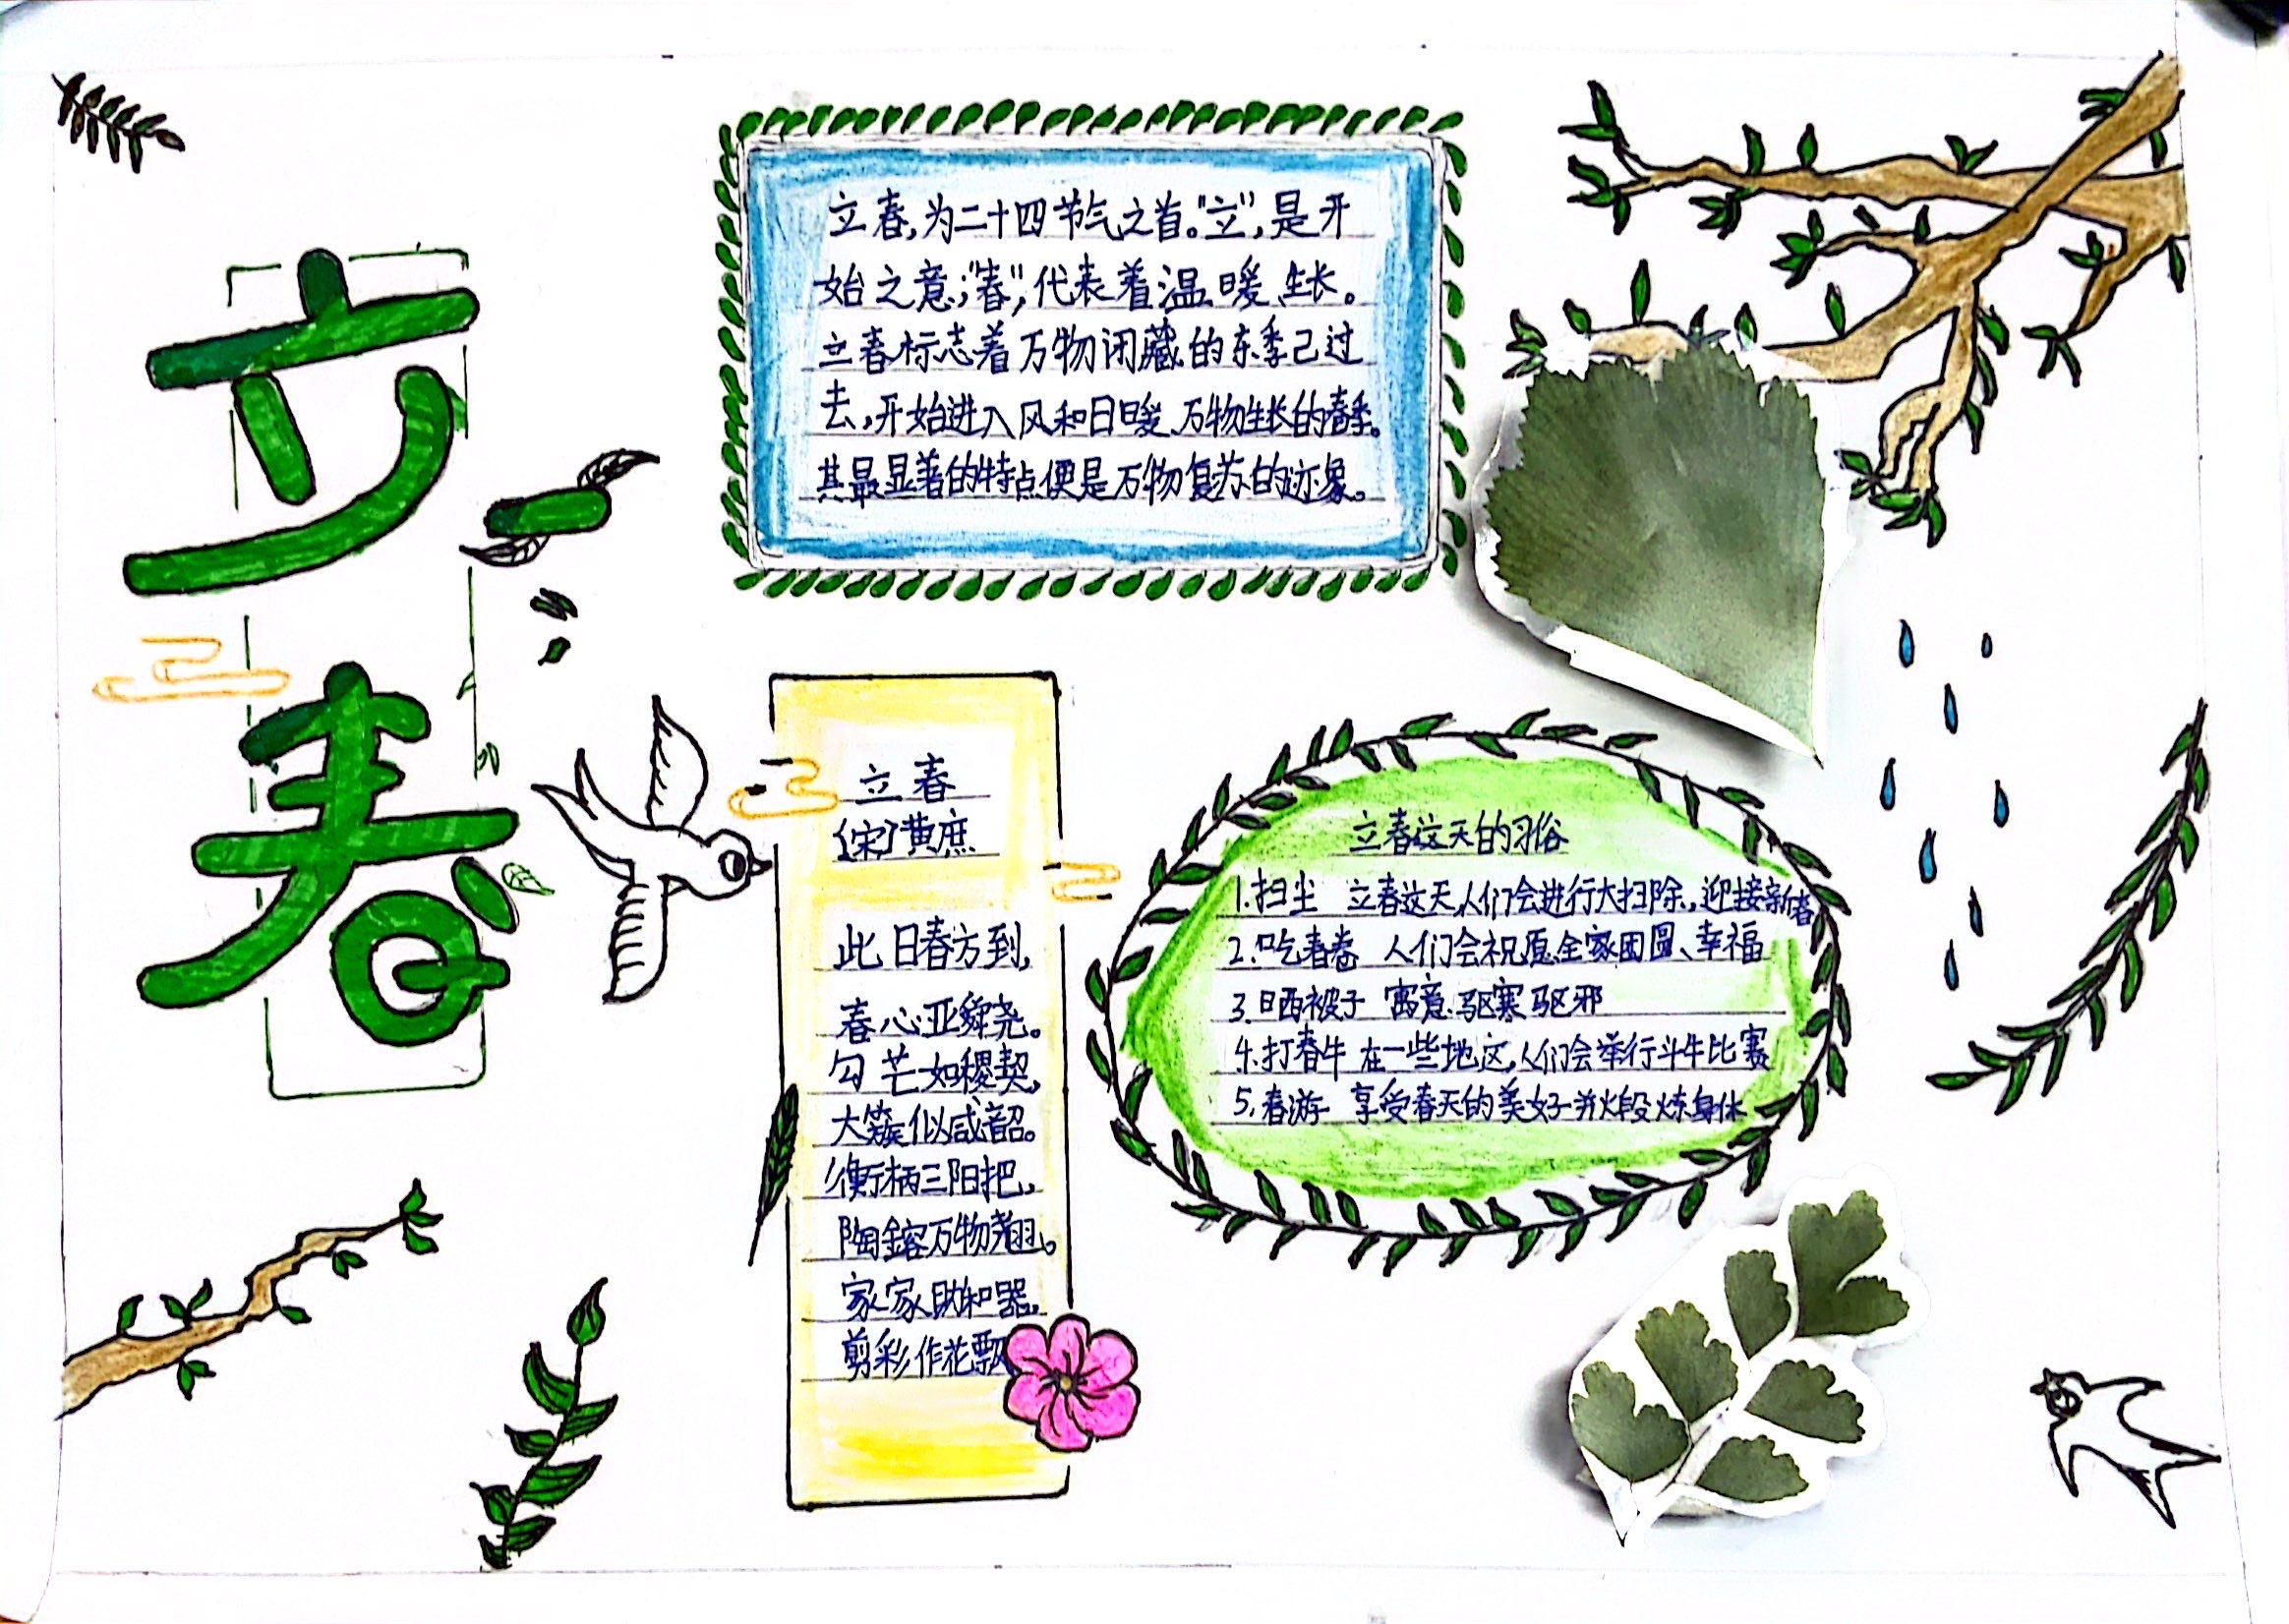 立春
立春，为二十四节气之首。“立”，是开
始之意；“春”，代表着温暖、生长。
立春标志着万物闭藏的冬季已过
去，开始进入风和日暖、万物生长的春季。
其最显著的特点便是万物复苏的迹象。
立春
〔宋〕黄庶
此日春方到，
春心亚舜尧。
勾芒如稷契，
大簇似咸韶。
衡柄三阳把，
陶鎔万物翘。
家家助和器，
剪彩作花飘
立春这天的习俗
1.扫尘 立春这天，人们会进行大扫除，迎接新春
2.吃春卷 人们会祝愿全家团圆、幸福
3.晒被子 寓意驱寒驱邪
4.打春牛 在一些地区，人们会举行斗牛比赛
5.春游 享受春天的美好并煅炼身体